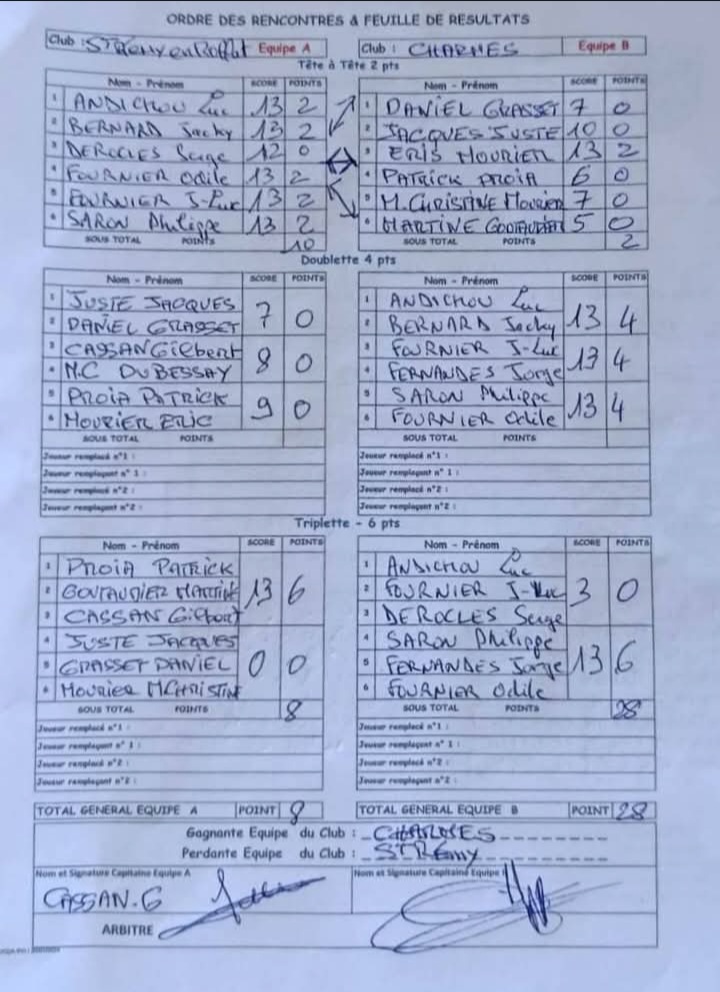 ORDRE DES RENCONTRES & FEUILLE DE RESULTATS
Club : St Remy en Rollat Equipe A Club : CHARMES Equipe B
Tête à Tête 2 pts
Nom - Prénom SCORE POINTS Nom - Prénom SCORE POINTS
1 ANDICHOU Luc 13 2 1 DANIEL GRASSET 7 0
2 BERNARD Jacky 13 2 2 JACQUES JUSTE 10 0
3 DEROCLES Serge 12 0 3 ERIS MOURIER 13 2
4 FOURNIER Odile 13 2 4 PATRICK PROIA 6 0
5 FOURNIER J-Luc 13 2 5 M.CHRISTINE Mourier 7 0
6 SARON Philippe 13 2 6 MARTINE 5 0
SOUS TOTAL POINTS 10 SOUS TOTAL POINTS 2
Doublette 4 pts
Nom - Prénom SCORE POINTS Nom - Prénom SCORE POINTS
1 JUSTE JACQUES 1 ANDICHOU Luc
2 DANIEL GRASSET 7 0 2 BERNARD Jacky 13 4
3 CASSAN Gilbert 3 FOURNIER J-Luc
4 M.C DUBESSAY 8 0 4 FERNANDES Jorge 13 4
5 PROIA PATRICK 5 SARON Philippe
6 MOURIER ERIC 9 0 6 FOURNIER Odile 13 4
SOUS TOTAL POINTS SOUS TOTAL POINTS
Joueur remplacé n°1 : Joueur remplacé n°1 :
Joueur remplaçant n° 1 : Joueur remplaçant n° 1 :
Joueur remplacé n°2 : Joueur remplacé n°2 :
Joueur remplaçant n°2 : Joueur remplaçant n°2 :
Triplette - 6 pts
Nom - Prénom SCORE POINTS Nom - Prénom SCORE POINTS
1 PROIA PATRICK 1 ANDICHOU Luc
2 GOUTAUDIER MARTINE 13 6 2 FOURNIER J-Luc 3 0
3 CASSAN Gilbert 3 DEROCLES Serge
4 JUSTE JACQUES 4 SARON Philippe
5 GRASSET DANIEL 0 0 5 FERNANDES Jorge 13 6
6 Mourier MCHRISTIN 6 FOURNIER Odile
SOUS TOTAL POINTS 8 SOUS TOTAL POINTS 28
Joueur remplacé n°1 : Joueur remplacé n°1 :
Joueur remplaçant n° 1 : Joueur remplaçant n° 1 :
Joueur remplacé n°2 : Joueur remplacé n°2 :
Joueur remplaçant n°2 : Joueur remplaçant n°2 :
TOTAL GENERAL EQUIPE A POINT 8 TOTAL GENERAL EQUIPE B POINT 28
Gagnante Equipe du Club : CHARMES
Perdante Equipe du Club : ST REMY
Nom et Signature Capitaine Equipe A Nom et Signature Capitaine Equipe
CASSAN.G
ARBITRE